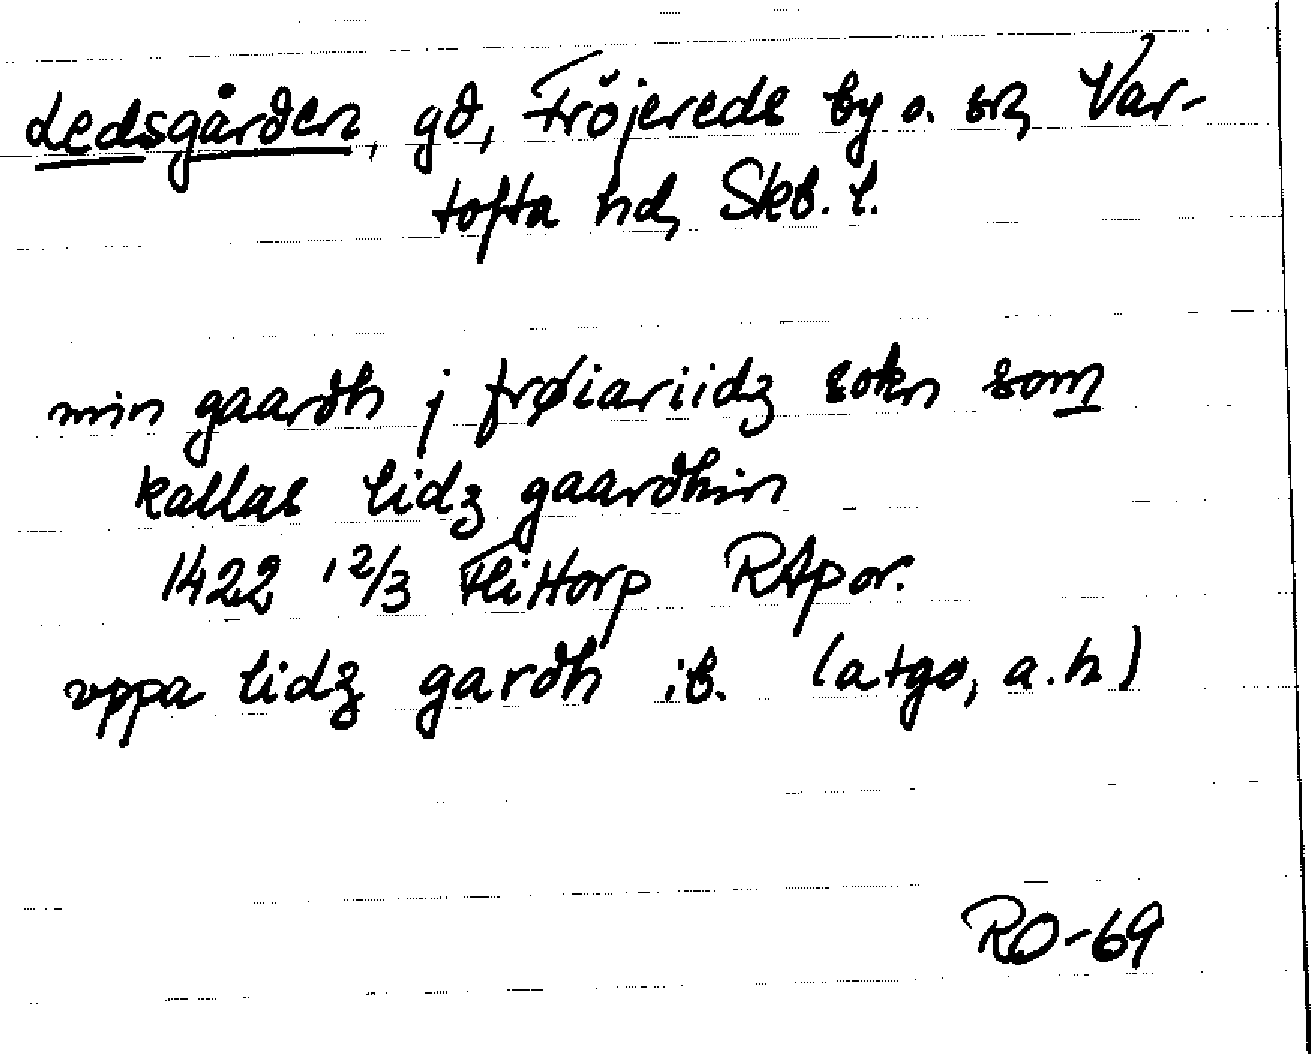 Ledsgården, gd, Fröjereds by o. sn, Var-
tofta hd, Skb. l.
min gaardh j frøiariidz sokn som
kallas lidz gaardhin
1422 12/3 Flittorp RAp or.
vppa lidz gardh ib. (atgo, a.h)
RO-69